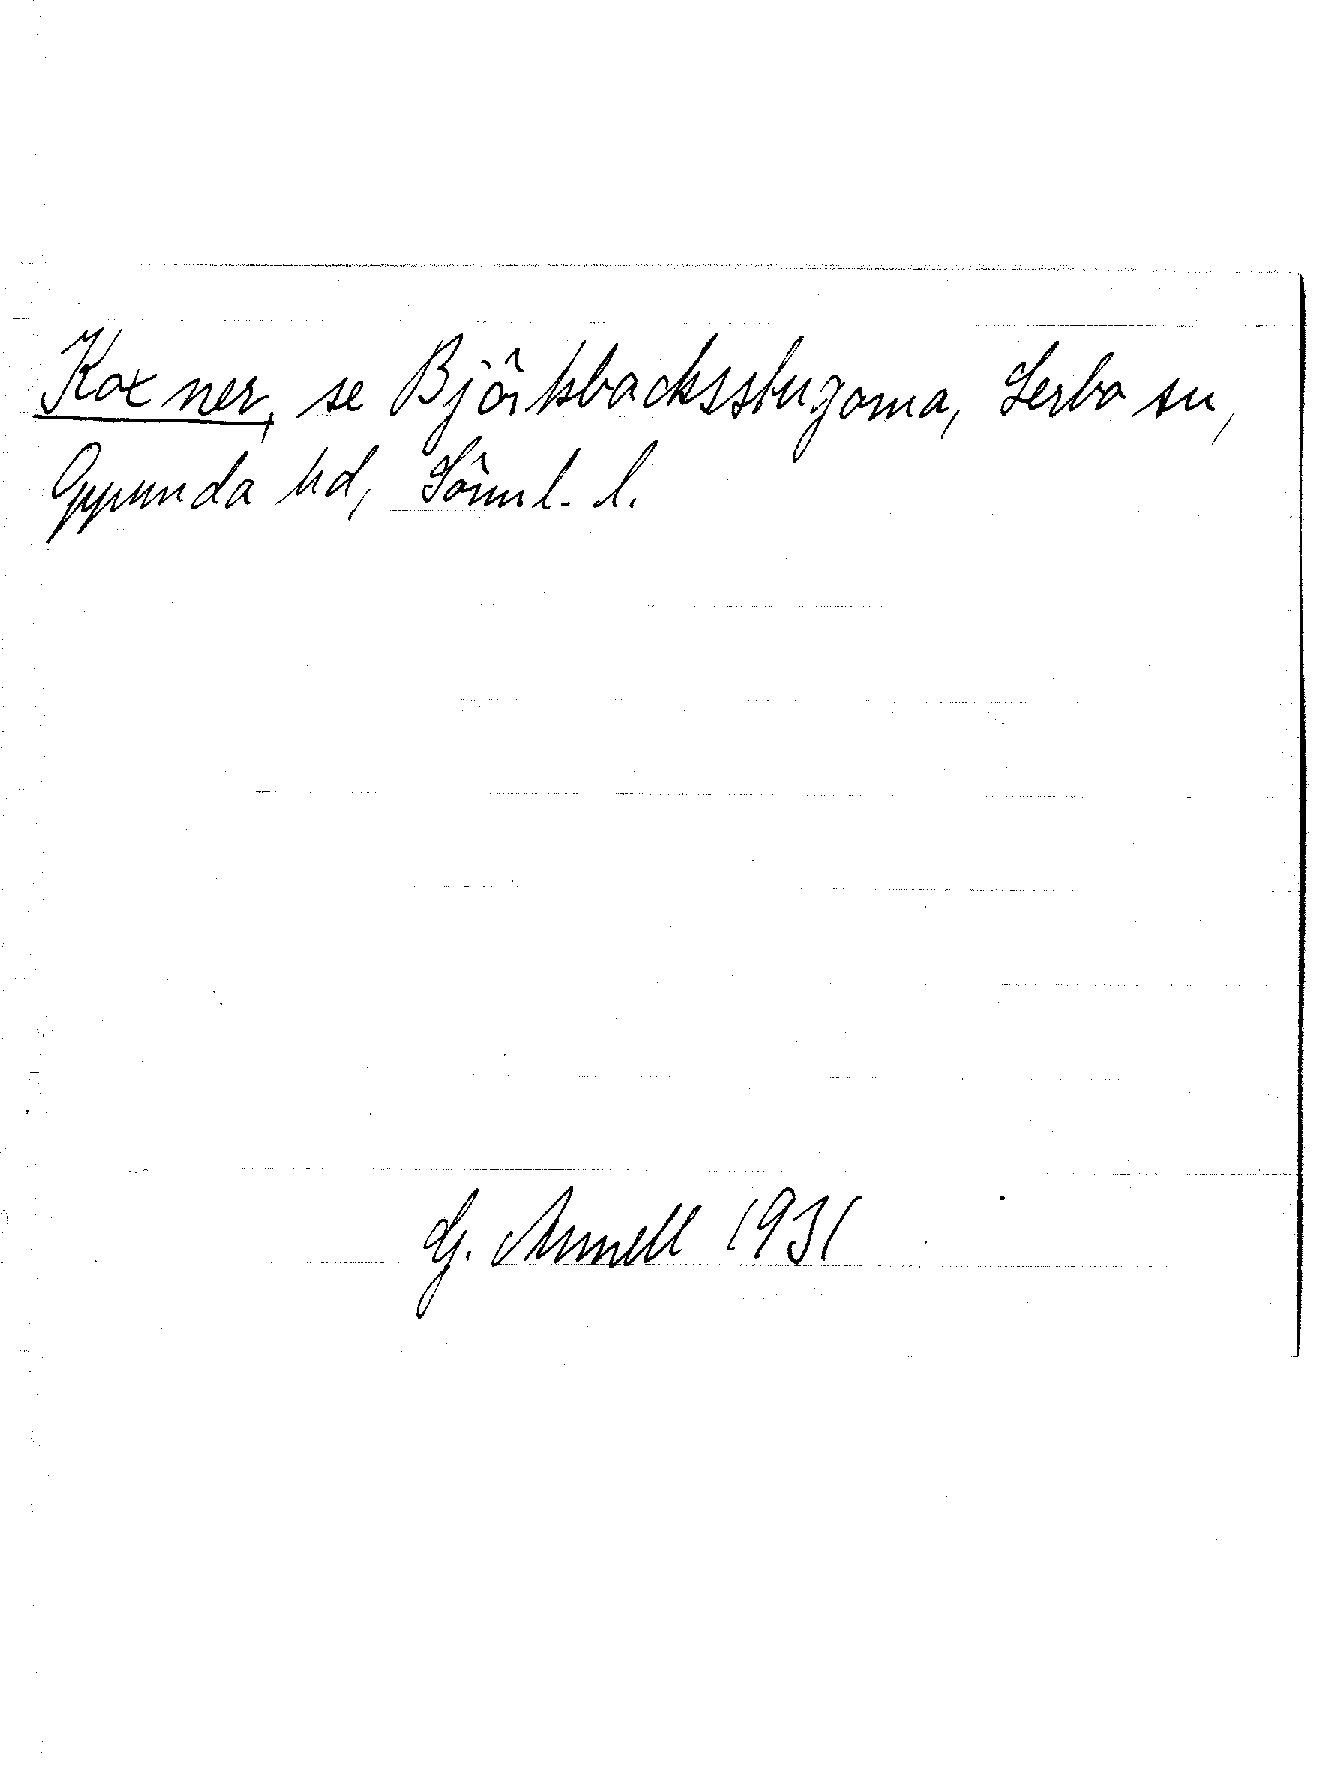 Koxner, se Björkbacksstugorna, Lerbo sn,
Oppunda hd, Sörml. l.
G. Arnell 1931